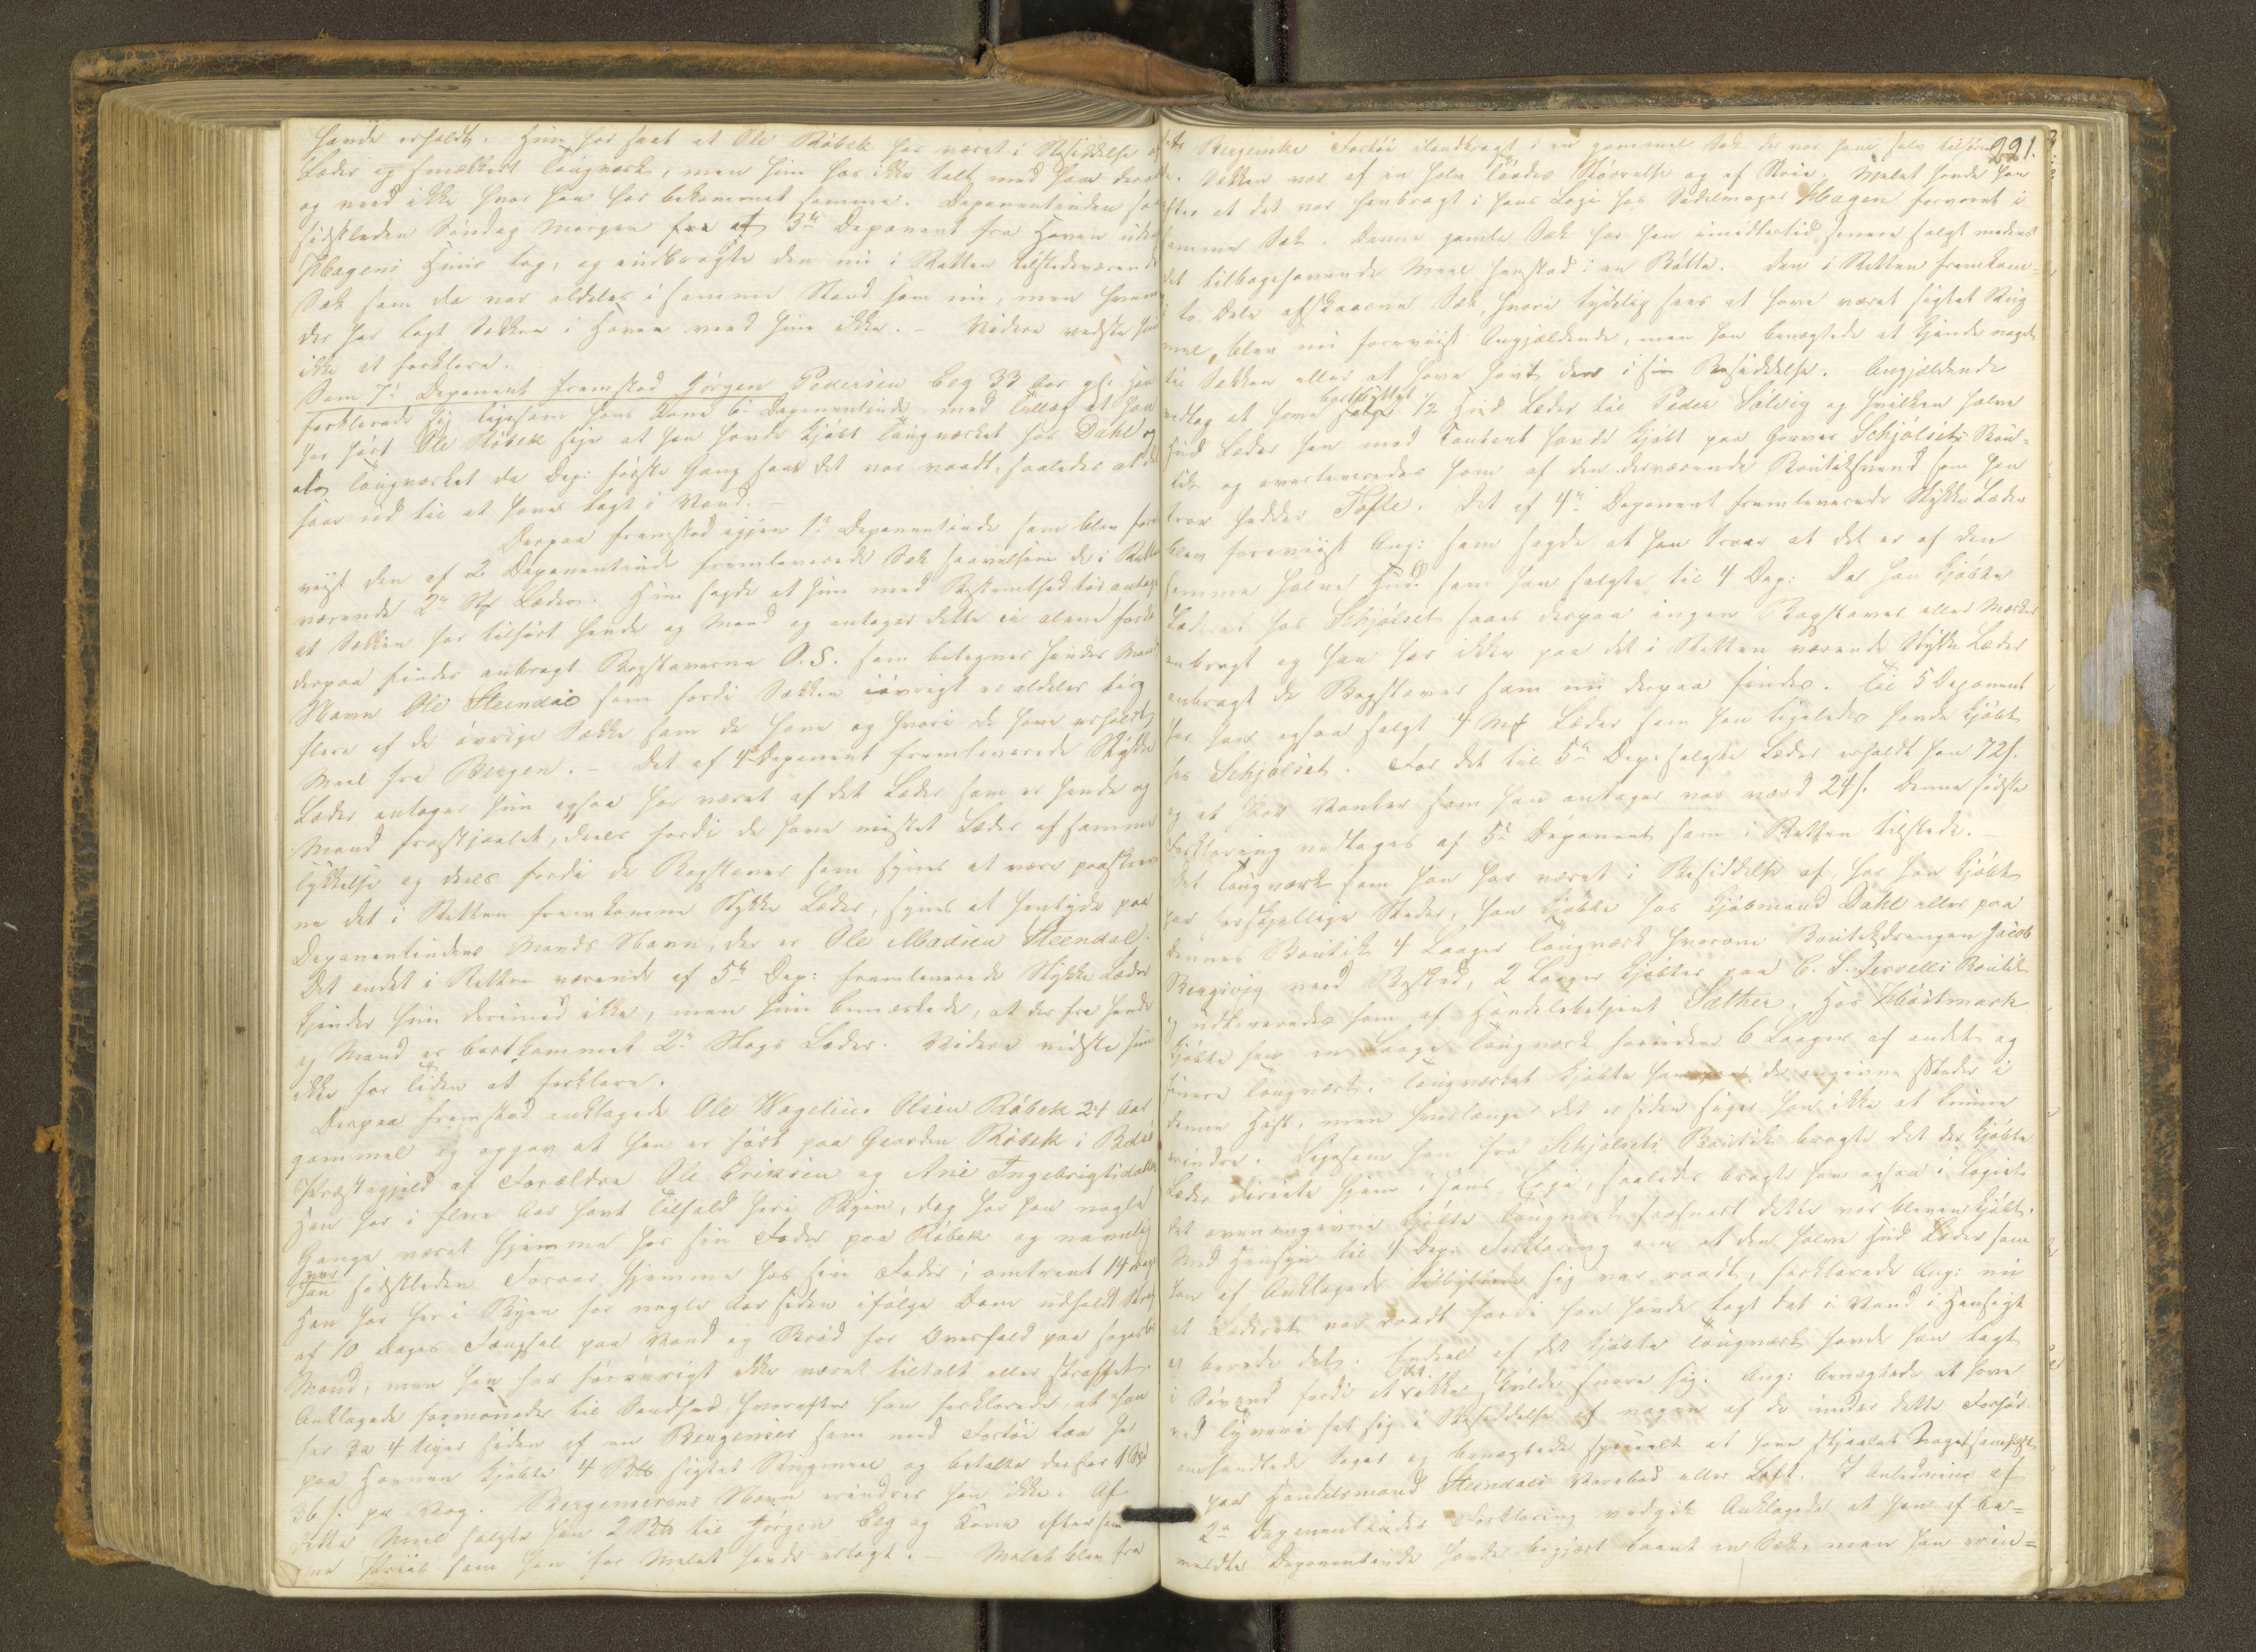 havde erholdt. Hun har seet at Ole Röbek har været i Besiddelse af
Læder og smækkert Tougværk, men hun har ikke talt med ham derom
og veed ikke hvor han har bekommet samme. Deponentinden saa
sidstleden Söndag Morgen 3die Deponent fra Haven uden
Hagens Huus tog, og indbragte den nu i Retten tilstedeværende
Sæk som da var aldeles i samme Stand som nu, men hvem
der har lagt Sækken i Haven veed hun ikke. – Videre vidste hun
ikke at forklare.
Som 7de Deponent fremstod Jörgen Pedersen Eeg 33 Aar gl: Han
forklarede sig ligesom hans Kone 6te Deponentinde med Tillæg at han
har hört Ole Röbek sige at han havde kjöbt Tougværket hos Dahl og
Tougværket da Dep: förste Gang saae det var vaadt, saaledes at det
saae ud til at have lagt i Vand. –
Derpaa fremstod igjen 1ste Deponentinde som blev fore
viist den af 2 Deponentinde fremleverede Sæk saavelsom de i Retten
værende 2de St Læder. Hun sagde at hun med Bestemthed tör antage
at Sækken har tilhört hende og Mand og antager dette ei alene fordi
derpaa findes anbragt Bogstaverne O. S. som betegner hendes Mands
Navn Ole Steendal som fordi Sækken iövrigt er aldeles lig
flere af de övrige Sække som de have og hvori de have erholdt
Meel fra Bergen. – Det af 4de Deponent fremleverede Stykke
Læder antager hun ogsaa har været af det Læder som er hende og
Mand frastjaalet, deels fordi de have mistet Læder af samme
Tykkelse og deels fordi de Bogstaver som synes at være paaskrev
ne det i Retten fremkomne Stykke Læder, synes at hentyde paa
Deponentindens Mands Navn, der er Ole Madsen Steendal.
Det andet i Retten værende af 5te Dep: fremleverede Stykke Læder
kjender hun derimod ikke, men hun bemærkede, at der fra hende
og Mand er bortkommet 2de Slags Læder. Videre vidste hun
ikke for Tiden at forklare.
Derpaa fremstod anklagede Ole Wagelius Olsen Röbek 24 Aar
gammel og opgav at han er födt paa Gaarden Röbek i Bolsö
Præstegjeld af Forældre Ole Eriksen og Ane Ingebrigtsdatter
Han har i flere Aar havt Tilhold her i Byen, dog har han nogle
Gange været hjemme hos sin Fader paa Röbek og navnlig
var
han sidstleden Foraar hjemme hos sin Fader i omtrent 14 Dage
Han har her i Byen for nogle Aar siden ifölge Dom udholdt Straf
af 10 Dages Fængsel paa Vand og Bröd for Overfald paa sagesl
Mand, men han har forövrigt ikke været tiltalt eller straffet.
Anklagede formanedes til Sandhed, hvorefter han forklarede, at han
for 3 a 4 Uger siden af en Bergenser som med Fartöi laa her
paa Havnen kjöbte 4 sigtet Rugmeel og betalte derfor 1
36 s. pr Vog. Bergenserens Navn erindrer han ikke. Af
dette Meel solgte han 2 til Jörgen Eeg og Kone efter sam
me Priis som han for Melet havde erlagt. – Melet blev fra
221.
dette Bergenske Fartöi ilandbragt i en gammel Sæk der var ham selv tilhörende
Sækken var af en halv Töndes Störrelse og af Strie. Melet havde han
efter at det var henbragt i hans Logi hos Sadelmager Hagen forvaret i
samme Sæk. Denne gamle Sæk har han imidlertid senere solgt medens
det tilbagehavende Meel henstod i en Bötte. Den i Retten fremkom=
to Dele afskaarne Sæk, hvori tydelig sees at have været sigtet Rug
meel, blev nu foreviist Angjældende, men han benægtede at kjende noget
til Sækken eller at have havt den i sin Besiddelse. Angjældende
bortbyttet
vedtog at have 1/2 Hud Læder til Peder Solvig og hvilken halve
Hud Læder han med Contant havde kjöbt paa Gorver Schjölsets Bou=
tik og overleveredes ham af den derværende Boutiksvend som han
troer hedder Tofle. Det af 4de Deponent fremleverede Stykke Læder
blev foreviist Ang: som sagde at han troer at det er af den
samme halve Hud som han solgte til 4 Dep: Da han kjöbte
Læderet hos Schjölset saaes derpaa ingen Bogstaver eller Mærker
anbragt og han har ikke paa det i Retten værende Stykke Læder
anbragt de Bogstaver som nu derpaa findes. Til 5 Deponent
har han ogsaa solgt 4 M Læder som han ligeledes havde kjöbt
hos Schjölset. For det til 5te Dep: solgte Læder erholdt han 72 s.
og et Par Vanter som han antager var værd 24 s. Denne sidste
Forklaring vedtages af 5te Deponent som i Retten tilstede.
Det Tougværk som han har været i Besiddelse af, har han kjöbt
paa forskjellige Steder, han kjöbte hos Kjöbmand Dahl eller paa
dennes Boutik 4 Longer Tougværk hvorom Boutiksdrengen Jacob
Bergsvig veed Besked, 2 Longer kjöbtes paa C. S. Jervells Boutik
og udleveredes ham af Handelsbetjent Sæther. Hos Höstmark
kjöbte han en Longe Tougværk foruden 6 Longer af andet og
finere Tougværk. Tougværket kjöbte han de angivne Steder i
denne Höst, men hvorlænge det er siden siger han ikke at kunne
erindre. Ligesom han fra Schjölsets Boutik bragte det der kjöbte
Læder directe hjem i hans Logi, saaledes bragte han ogsaa i Logiet
det ovenangivne kjöbte Tougværk saasnart dette var bleven kjöbt.
Med Hensyn til 4 Dep: Forklaring om at den halve Hud Læder som
han af Anklagede tilbyttede sig var vaadt, forklarede Ang: nu
at Læderet var vaadt fordi han havde lagt det i Vand i Hensigt
at berede det. Endeel af det kjöbte Tougværk havde han lagt
i Sövand fordi at det ikke skulde snoe sig. Ang: benægtede at have
ved Tyveri sat sig i Besiddelse af nogen af de under dette Forhör
omhandlede Sager og benægtede specielt at have stjaalet Noget
paa Handelsmand Steendals Vareboed eller Loft. I Anledning af
2den Deponentindes Forklaring vedgik Anklagede at han af be=
meldte Deponentinde havde begjært laant en Sæk, men han erin=